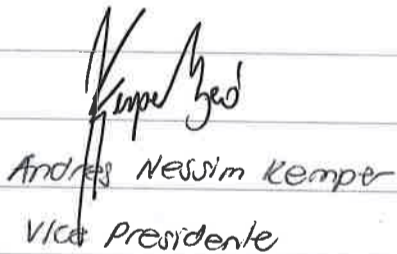 Kemper
Andres Nessim Kemper
Vice Presidente